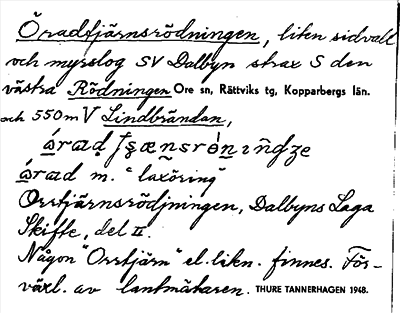 Öradtjärnsrödningen, liten sidvall
och myrslog SV Dalbyn strax S den
västra Rödningen Ore sn, Rättviks tg, Kopparbergs län.
och 550 m V Lindbrändan,
örad m. "laxöring"
Orrtjärnsrödjningen, Dalbyns Laga
Skifte, del II.
Någon "Orrtjärn" el. likn. finnes. För-
växl. av lantmätaren. THURE TANNERHAGEN 1948.